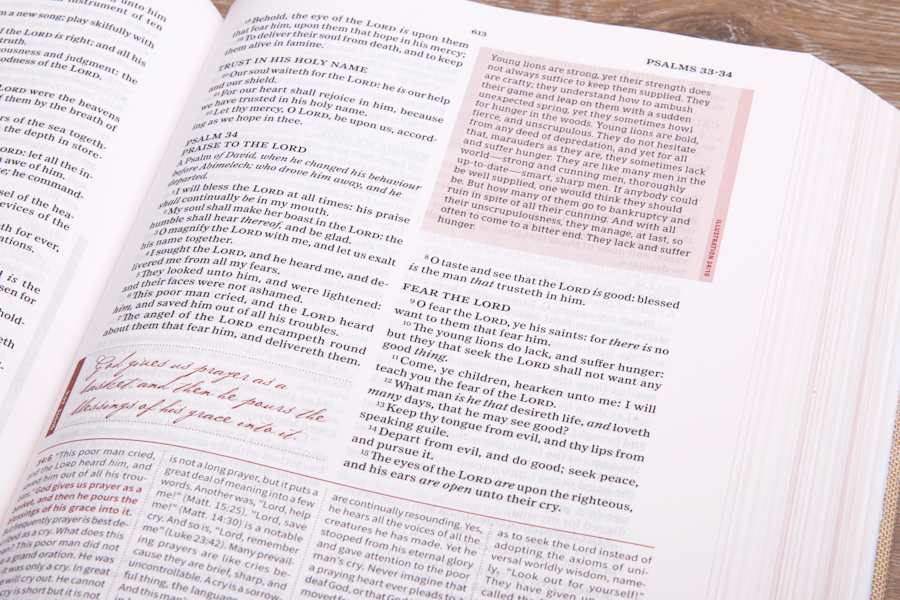 unto him
instrument of ten
a new song; play skilfully with
of the LORD is right; and all his
truth.
ousness and judgment: the
odness of the LORD.
LORD were the heavens
of them by the breath of
ers of the sea togeth-
the depth in store-
LORD: let all the in-
awe of him.
e; he command-
sel of the hea-
devices of the
th for ever,
ations.
is the
sen for
hold-
eth
613
PSALMS 33-34
18 Behold, the eye of the LORD is upon them
that fear him, upon them that hope in his mercy;
19 To deliver their soul from death, and to keep
them alive in famine.
TRUST IN HIS HOLY NAME
20 Our soul waiteth for the LORD: he is our help
and our shield.
21 For our heart shall rejoice in him, because
we have trusted in his holy name.
22 Let thy mercy, O LORD, be upon us, accord-
ing as we hope in thee.
PSALM 34
PRAISE TO THE LORD
A Psalm of David, when he changed his behaviour
before Abimelech; who drove him away, and he
departed.
1 I will bless the LORD at all times: his praise
shall continually be in my mouth.
2 My soul shall make her boast in the LORD: the
humble shall hear thereof, and be glad.
3 O magnify the LORD with me, and let us exalt
his name together.
4 I sought the LORD, and he heard me, and de-
livered me from all my fears.
5 They looked unto him, and were lightened:
and their faces were not ashamed.
6 This poor man cried, and the LORD heard
him, and saved him out of all his troubles.
7 The angel of the LORD encampeth round
about them that fear him, and delivereth them.
God gives us prayer as a
basket, and then he pours the
blessings of his grace into it.
Young lions are strong, yet their strength does
not always suffice to keep them supplied. They
are crafty; they understand how to ambush
their game and leap on them with a sudden
unexpected spring, yet they sometimes howl
for hunger in the woods. Young lions are bold,
fierce, and unscrupulous. They do not hesitate
from any deed of depredation, and yet for all
that, marauders as they are, they sometimes lack
and suffer hunger. They are like many men in the
world—strong and cunning men, thoroughly
up-to-date—smart, sharp men. If anybody could
be well supplied, one would think they should
be. But how many of them go to bankruptcy and
ruin in spite of all their cunning. And with all
their unscrupulousness, they manage, at last, so
often to come to a bitter end. They lack and suffer
hunger.
ILLUSTRATION 34:10
8 O taste and see that the LORD is good: blessed
is the man that trusteth in him.
FEAR THE LORD
9 O fear the LORD, ye his saints: for there is no
want to them that fear him.
10 The young lions do lack, and suffer hunger:
but they that seek the LORD shall not want any
good thing.
11 Come, ye children, hearken unto me: I will
teach you the fear of the LORD.
12 What man is he that desireth life, and loveth
many days, that he may see good?
13 Keep thy tongue from evil, and thy lips from
speaking guile.
14 Depart from evil, and do good; seek peace,
and pursue it.
15 The eyes of the LORD are upon the righteous,
and his ears are open unto their cry.
34:6 "This poor man cried,
and the LORD heard him, and
saved him out of all his trou-
God gives us prayer as a
basket, and then he pours the
blessings of his grace into it.
frequently prayer is best de-
scribed as a cry. What does this
This poor man did not
a grand oration. He was
it was only a cry. In great
will cry out. He cannot
cry is short but it is not
is not a long prayer, but it puts a
great deal of meaning into a few
words. Another was, "Lord, help
me!" (Matt. 15:25). "Lord, save
me!" (Matt. 14:30) is a notable
cry. And so is, "Lord, remember
me" (Luke 23:42). Many prevail-
ing prayers are like cries be-
cause they are brief, sharp, and
uncontrollable. A cry is a sorrow-
ful thing, the language
And this man's
are continually resounding. Yes,
he hears all the voices of all the
creatures he has made. Yet he
stooped from his eternal glory
and gave attention to the poor
man's cry. Never imagine that
a praying heart ever pleads to a
deaf God, or that God
moved from
as to seek the Lord instead of
adopting the axioms of uni-
versal worldly wisdom, name-
ly, "Look out for yourself!"
They have given up
called the